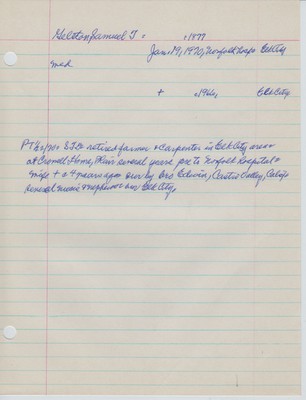 Gelston Samuel T = c1877
Jan. 19, 1970, Norfolk Nebr Elk City
md
+ c1966, Elk City
a retired farmer & carpenter in Elk City area
at Crowell Home, Blair several years pre to Norfolk Hospital
wife + c 4 years ago sur by bro Edwin, Castro Valley, Calif
several nieces & nephews sur Elk City,